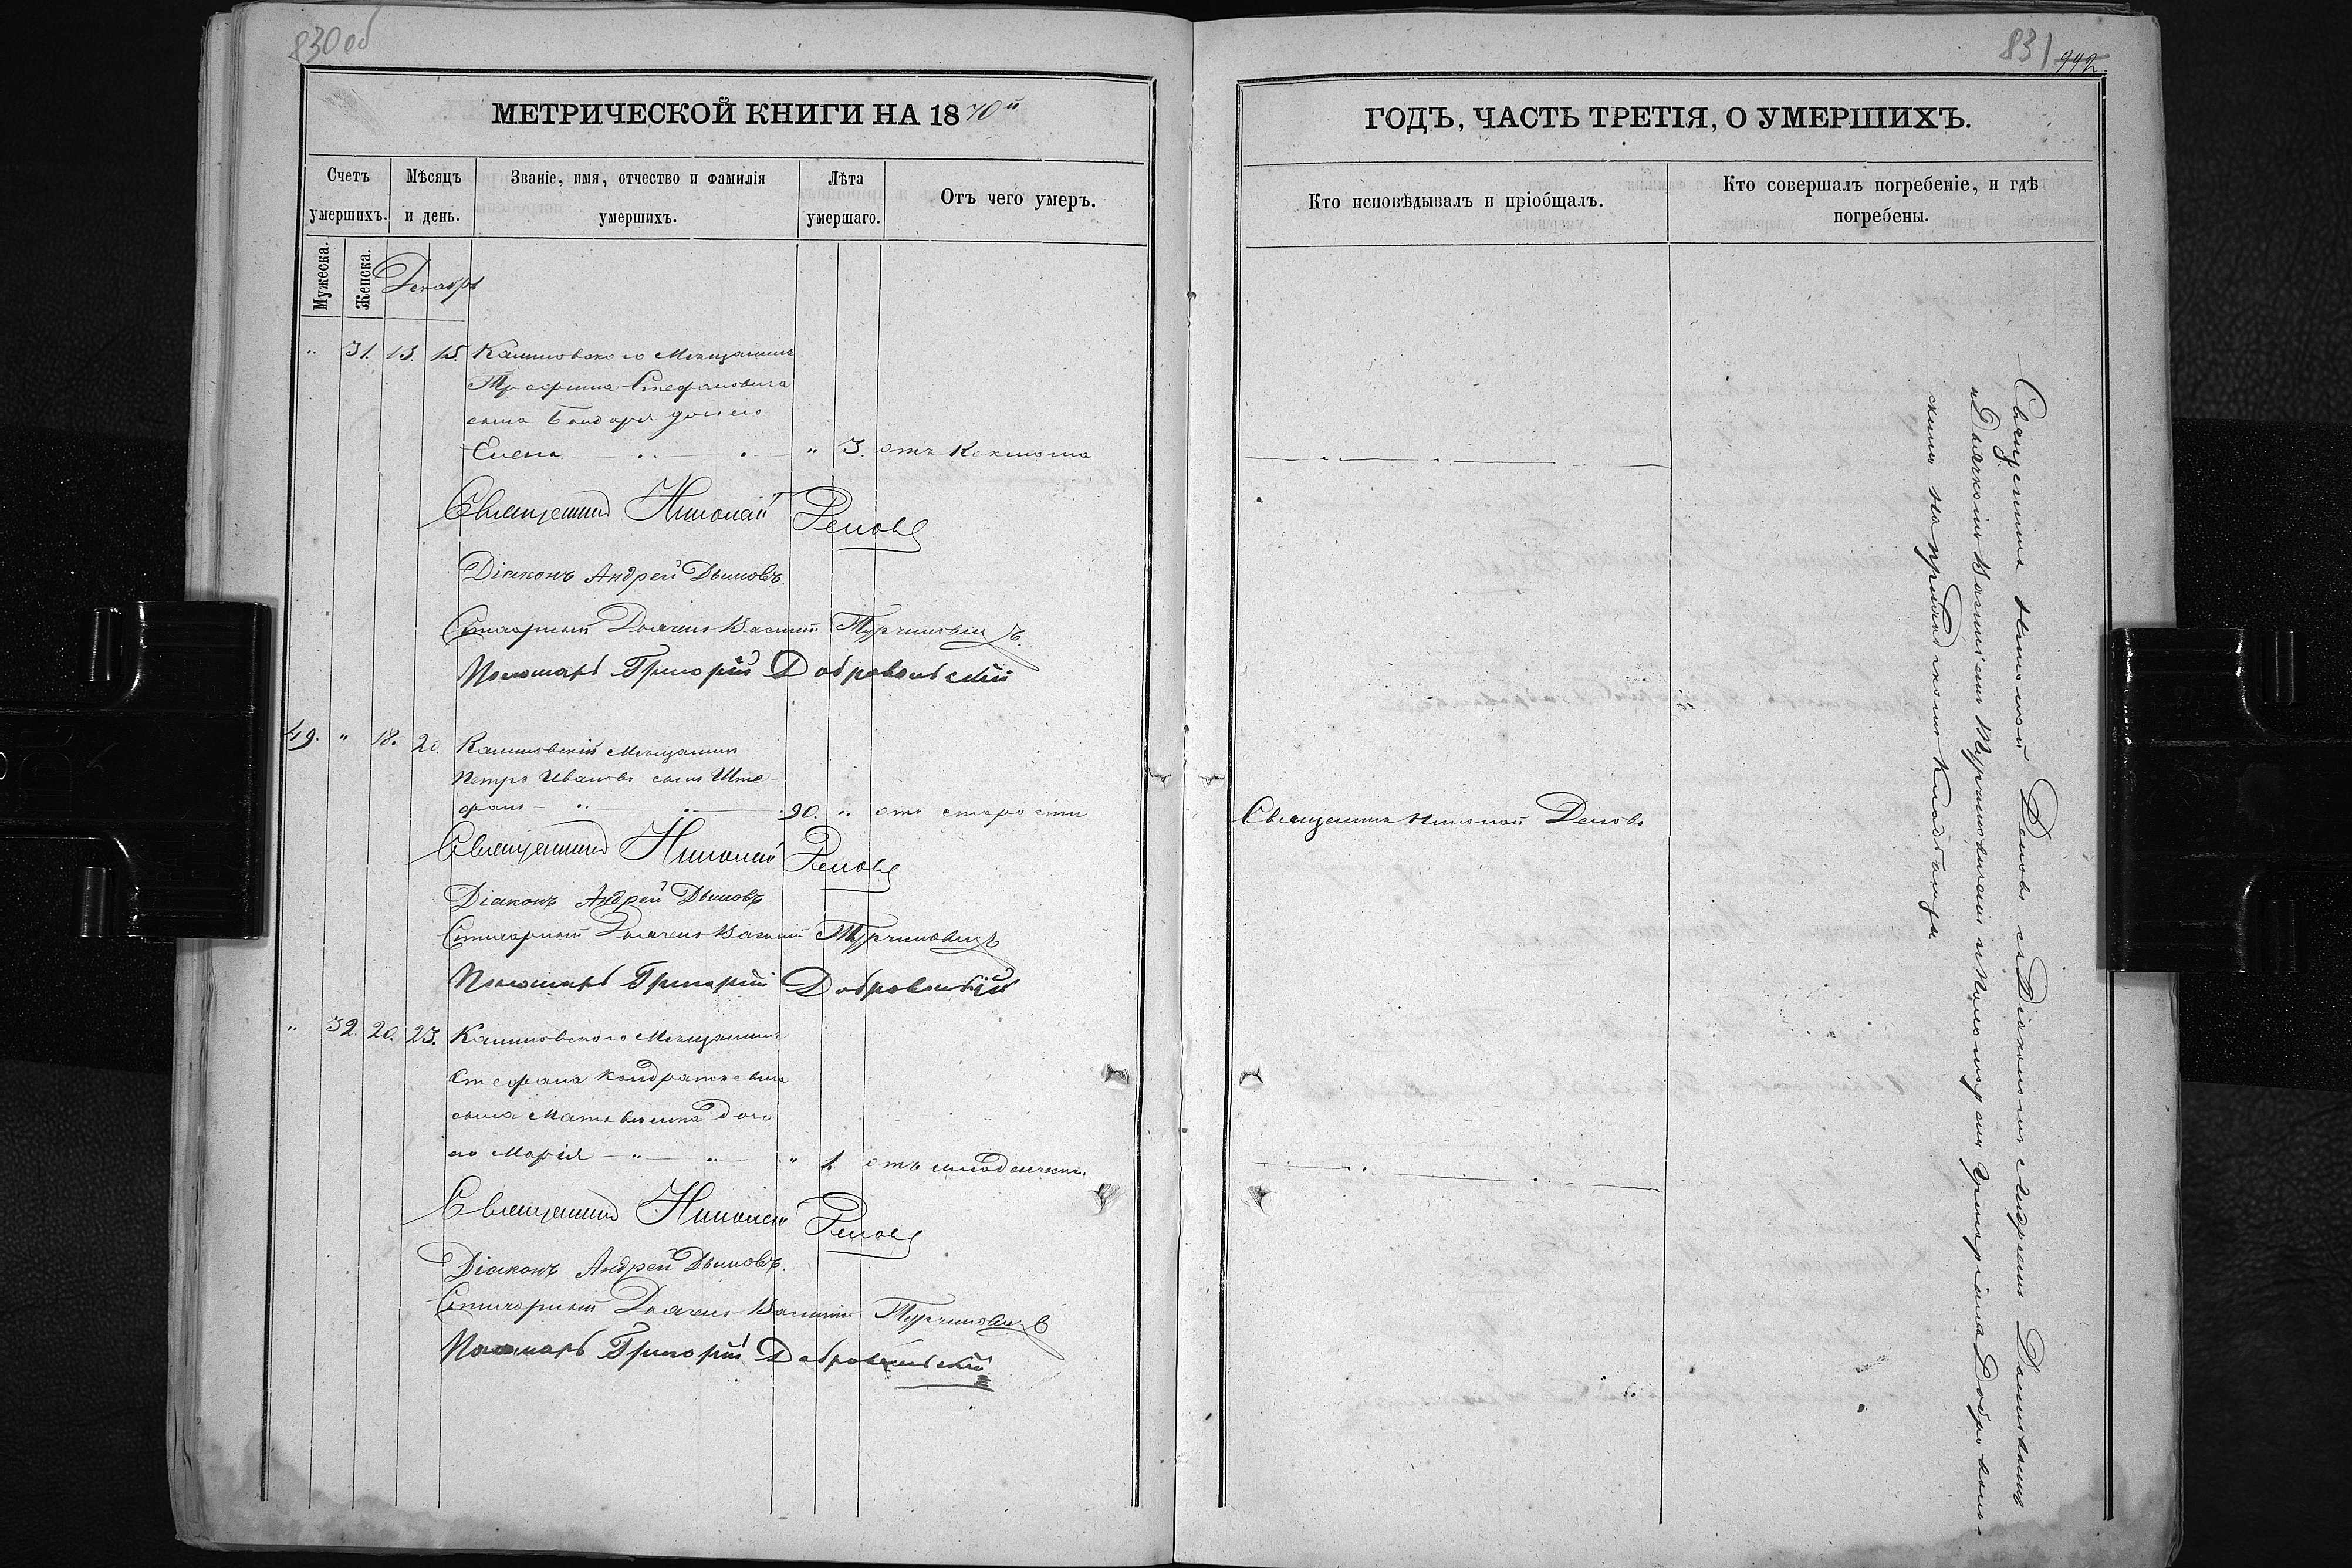 830об
МЕТРИЧЕСКОЙ КНИГИ НА 1870й
Счетъ умершихъ.
Мѣсяцъ и день.
Званіе, имя, отчество и фамилія умершихъ.
Лѣта умершаго.
Отъ чего умеръ.
Мужеска.
Женска.
Декабрь
" 31. 13. 15. Мѣщанина
Трофима Стефановича
сына Бондаря дочь его
Елена " 3. отъ Коклюша
Священникъ Николай
Діаконъ Андрей Дымовъ.
Стихарный Дьячекъ Василій Турчиновичъ
Пономарь Григорій Добровольскій
49. " 18. 20. Мѣщанинъ
Петръ Ивановъ сынъ Ште-
фанъ 90. " отъ старости
Священникъ Николай
Діаконъ Андрей Дымовъ
Стихарный Дьячекъ Василій Турчиновичъ
Пономарь Григорій Добровольскій
" 32. 20. 23. Мѣщанина
Стефана Кондратьевича
сына дочь
его Марія " 1. отъ младенческ.
Священникъ Николай
Діаконъ Андрей Дымовъ.
Стихарный Дьячекъ Василій Турчиновичъ
Пономарь Григорій Добровольскій
831 992
ГОДЪ, ЧАСТЬ ТРЕТІЯ, О УМЕРШИХЪ.
Кто исповѣдывалъ и пріобщалъ.
Кто совершалъ погребеніе, и гдѣ погребены.
Священникъ Николай
Священникъ Николай съ Діакономъ Андреемъ Дымовымъ
и Дьячкомъ Василіемъ Турчиновичемъ и Пономаремъ Григоріемъ Доброволь-
скимъ на приходскомъ Кладбищѣ.